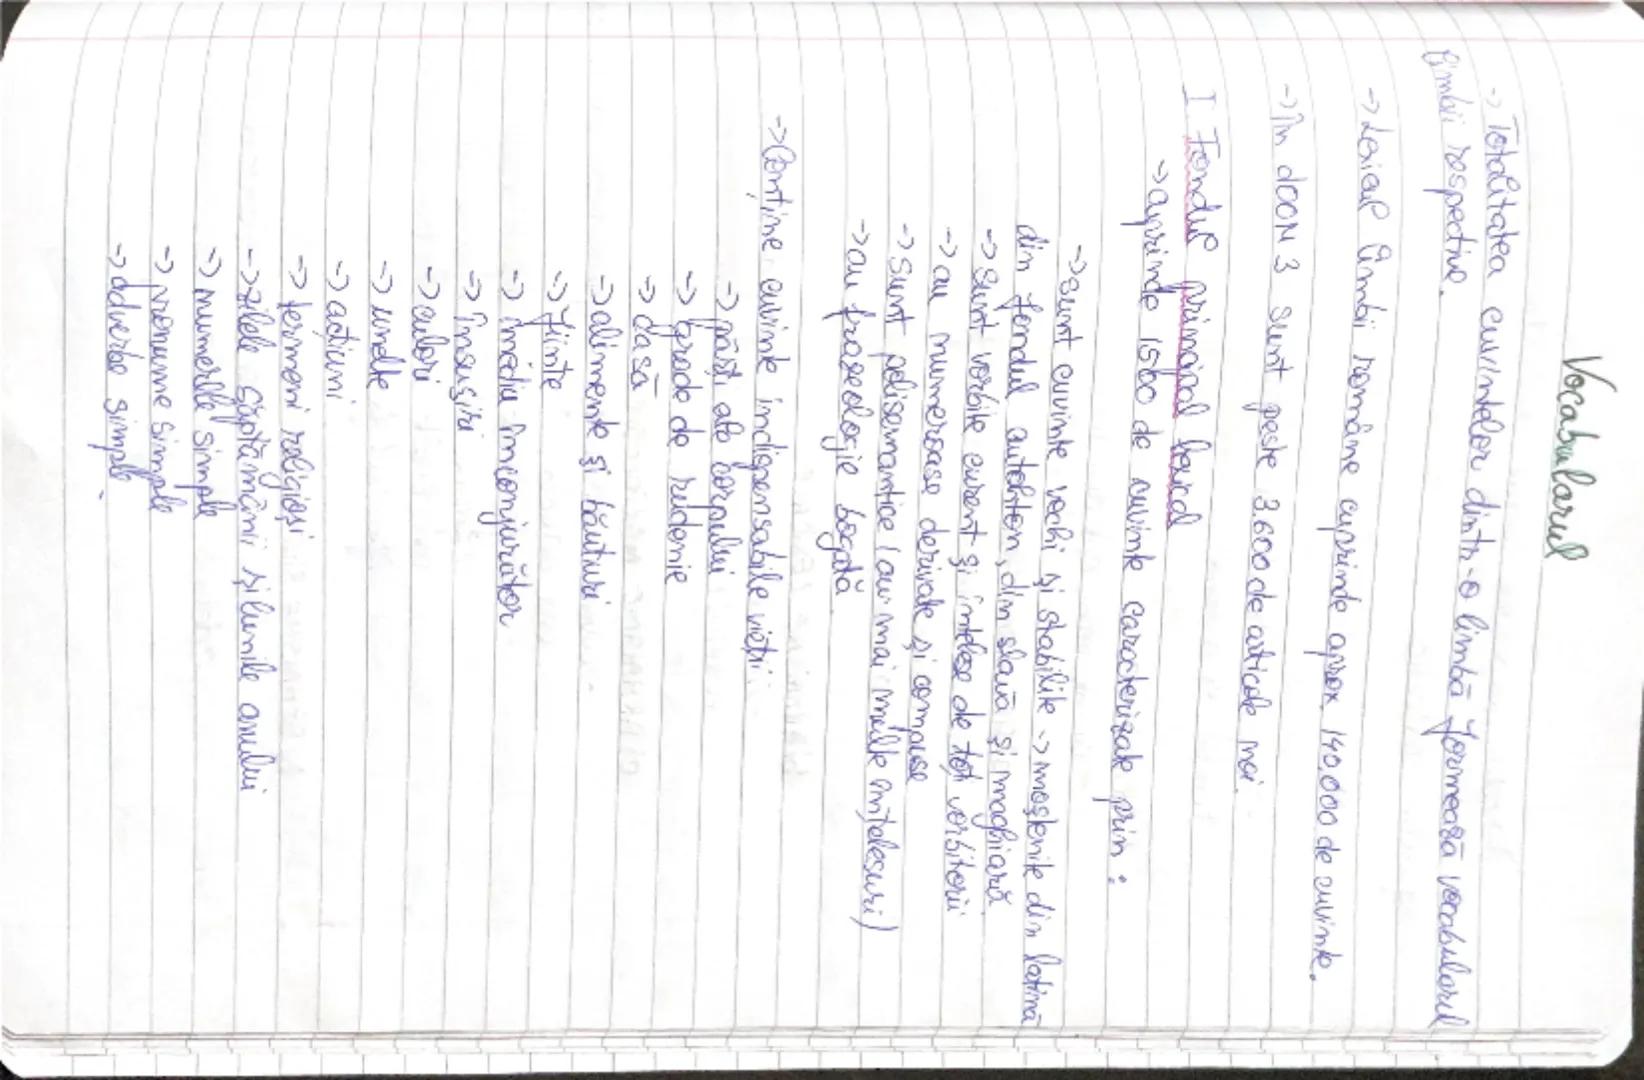 Vocabularul
-> Totalitatea cuvintelor dintr-o limbă formează vocabularul
limbii respective.
-> Lexicul limbii române cuprinde aprox 140.000 de cuvinte.
-> În DOOM 3 sunt peste 3.600 de articole noi.
I Fondul principal lexical
-> cuprinde 1500 de cuvinte caracterizate prin:
-> sunt cuvinte vechi și stabilite -> moștenite din latină
din fondul autohton, din slavă și maghiară
-> sunt vorbite curent și intelese de toți vorbitorii
-> au numeroase derivate și compuse
-> Sunt polisemantice (au mai multe înțelesuri)
-> au frazeologie bogată
-> Conține cuvinte indispensabile vieții:
-> părți ale corpului
-> grade de rudenie
-> casă
-> alimente și băuturi
-> ființe
-> mediu înconjurător
-> însușiri
-> culori
-> unelte
-> acțiuni
-> termeni religioși
-> zilele săptămânii și lunile anului
-> numerele simple
-> pronume simple
-> adverbe simple.